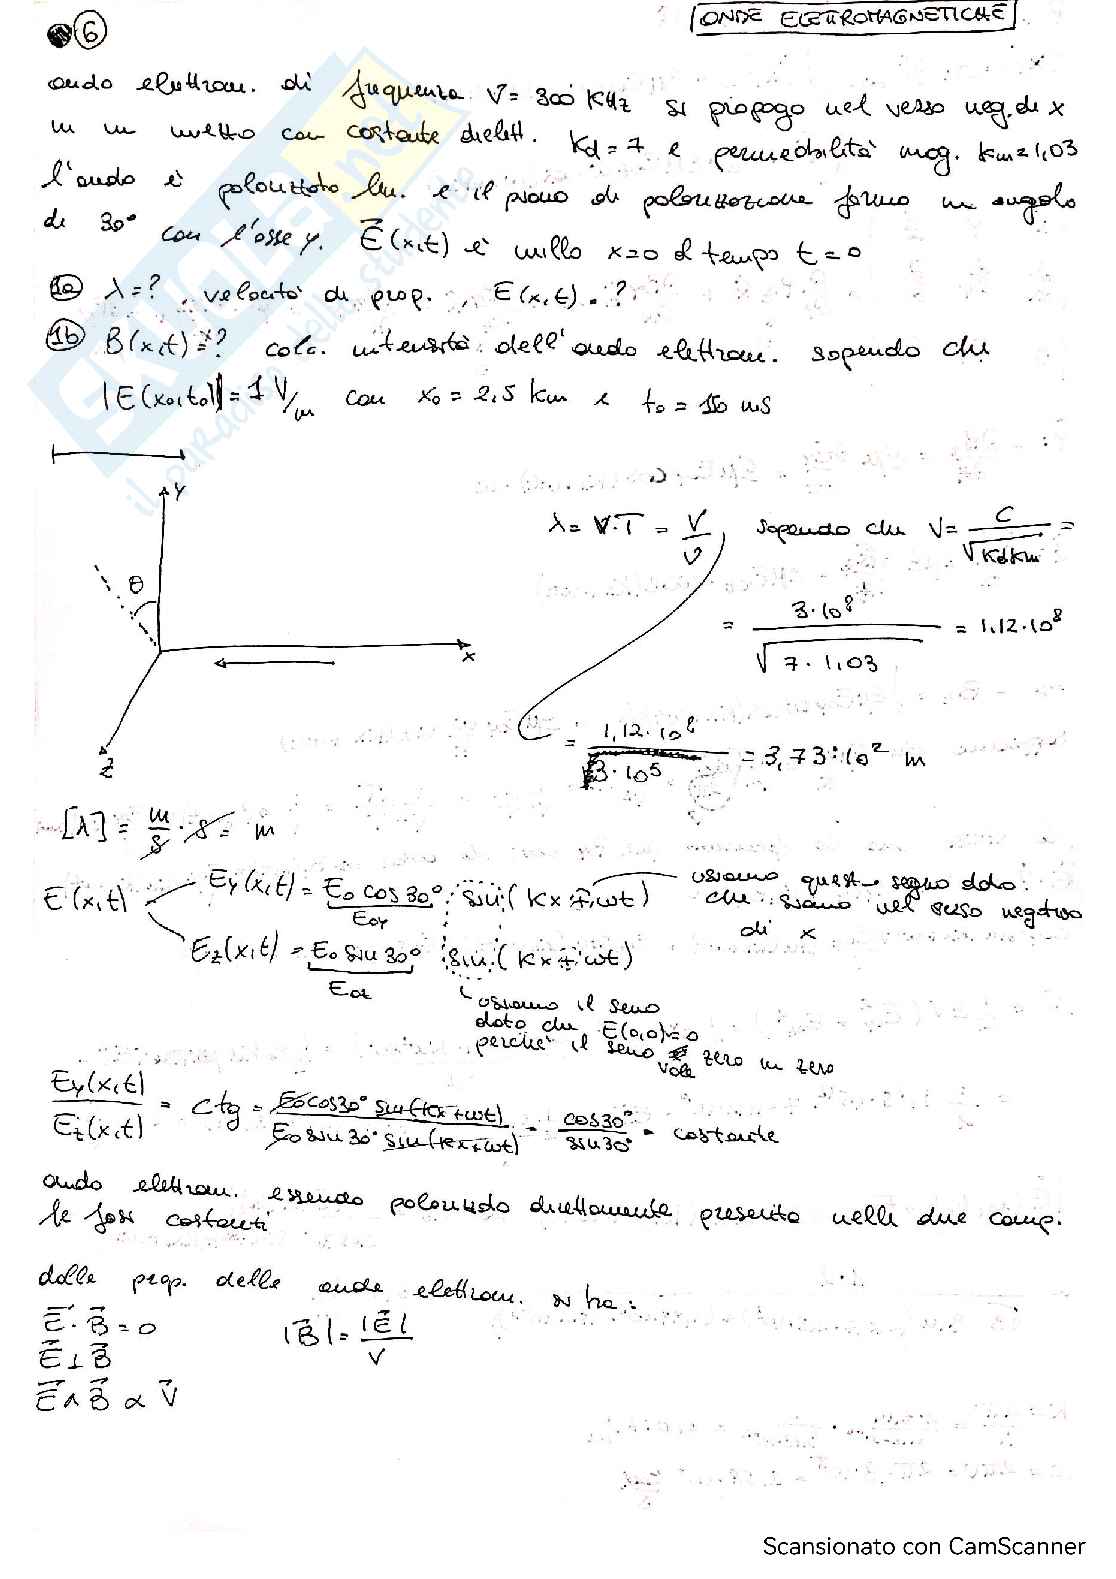 6
ONDE ELETTROMAGNETICHE
onda elettrom. di frequenza ν = 300 KHz si propaga nel verso neg. di x
in un mezzo con costante dielett. Kd = 7 e permeabilità mag. Km = 1,03
l'onda è polarizzata lin. e il piano di polarizzazione forma un angolo
di 30° con l'asse y. E(x,t) è nullo x=0 al tempo t=0
1a λ=? , velocità di prop. , E(x,t) = ?
1b B(x,t)=? calc. intensità dell'onda elettrom. sapendo che
|E(x0,t0)| = 1 V/m con x0 = 2,5 km e t0 =
y
θ
x
z
λ = V·T = V/ν , sapendo che V = C/√KdKm =
= 3·10⁸/√7·1,03 = 1,12·10⁸
= 1,12·10⁸/3·10⁵ = 3,73·10² m
[λ] = m/s · s = m
E(x,t)
Ey(x,t) = E0 cos30° sin(Kx + ωt)
E0y
usiamo questo segno dato
che siamo nel senso negativo
di x
Ez(x,t) = E0 sin30° sin(Kx + ωt)
E0z
usiamo il seno
dato che E(0,0)=0
perché il seno vale zero in zero
Ey(x,t)/Ez(x,t) = ctg = E0cos30° sin(Kx+ωt)/E0 sin30° sin(Kx+ωt) = cos30°/sin30° = costante
onda elettrom. essendo direttamente presenta nelle due comp.
le fasi costanti
dalle prop. delle onde elettrom. si ha:
E · B = 0
|B| = |E|/V
E ⊥ B
E ∧ B ∝ V
SKUOLA.net
il paradiso dello studente
Scansionato con CamScanner